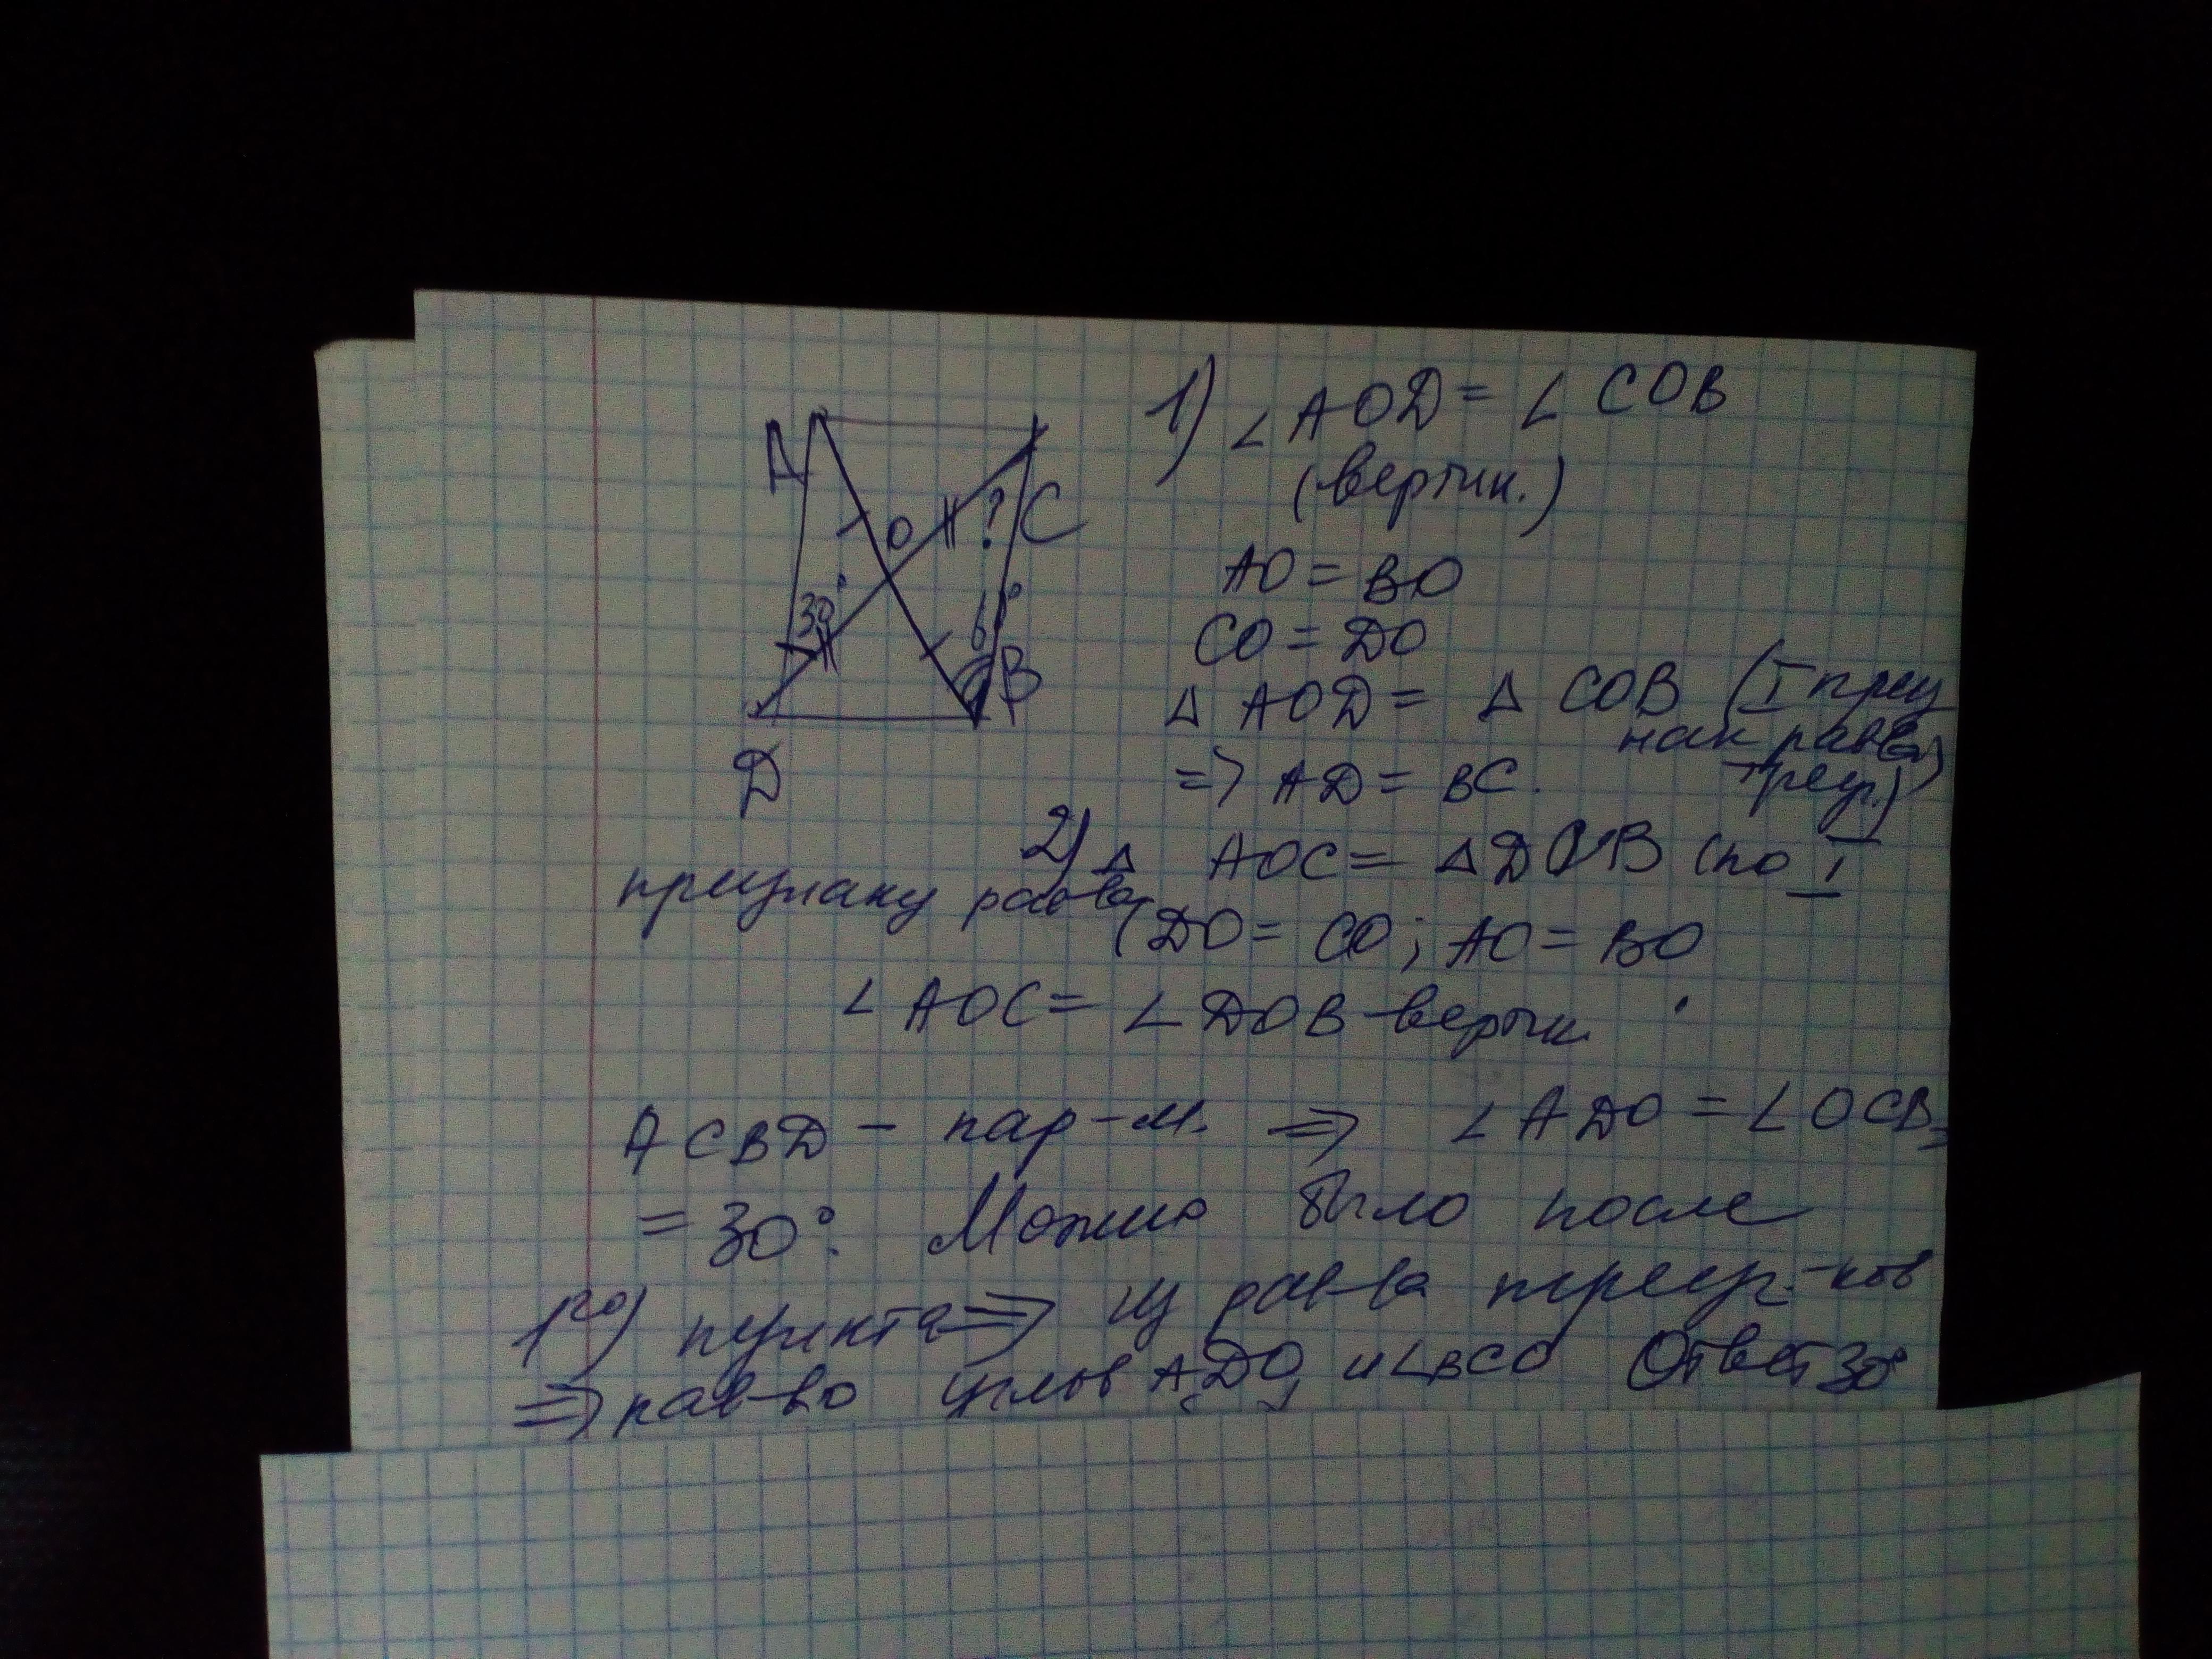 A
C
O
?
30°
B
D
1) ∠ AOD = ∠ COB
(вертик.)
AO = BO
CO = DO
Δ AOD = Δ COB (I приз
нак рав-ва
треуг.)
=> AD = BC.
2) Δ AOC = Δ DOB (по I
признаку рав-ва
(DO = CO; AO = BO
∠ AOC = ∠ DOB - вертик.
ACBD - пар-м. => ∠ ADO = ∠ OCB =
= 30°. Можно было после
1го) пункта => из рав-ва треуг.-ков
=> рав-во углов ADO и ∠BCO Ответ 30°